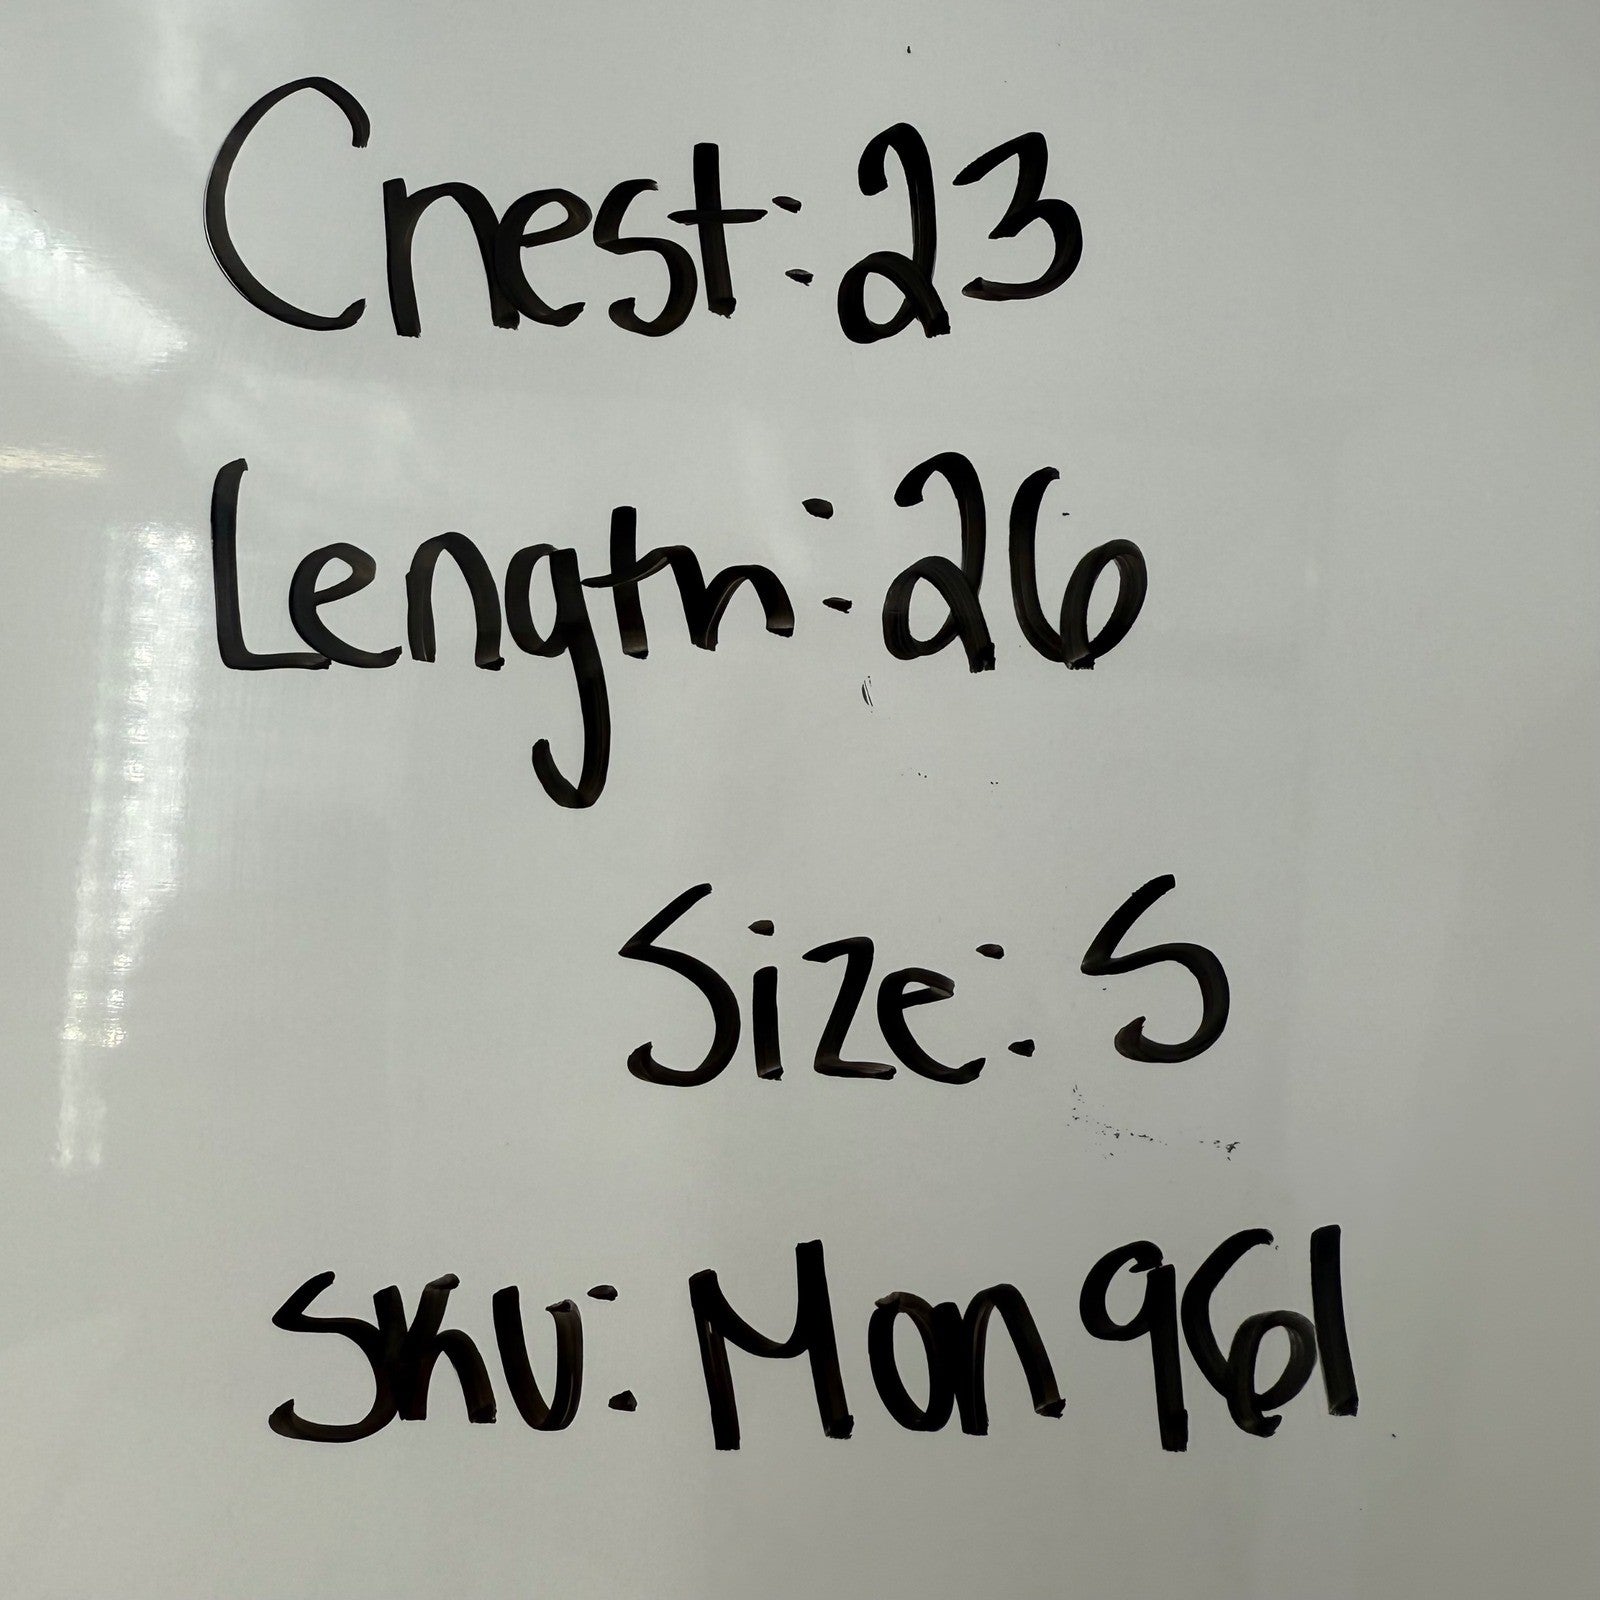 Chest: 23
Length: 26
Size: S
SKU: Mon 961